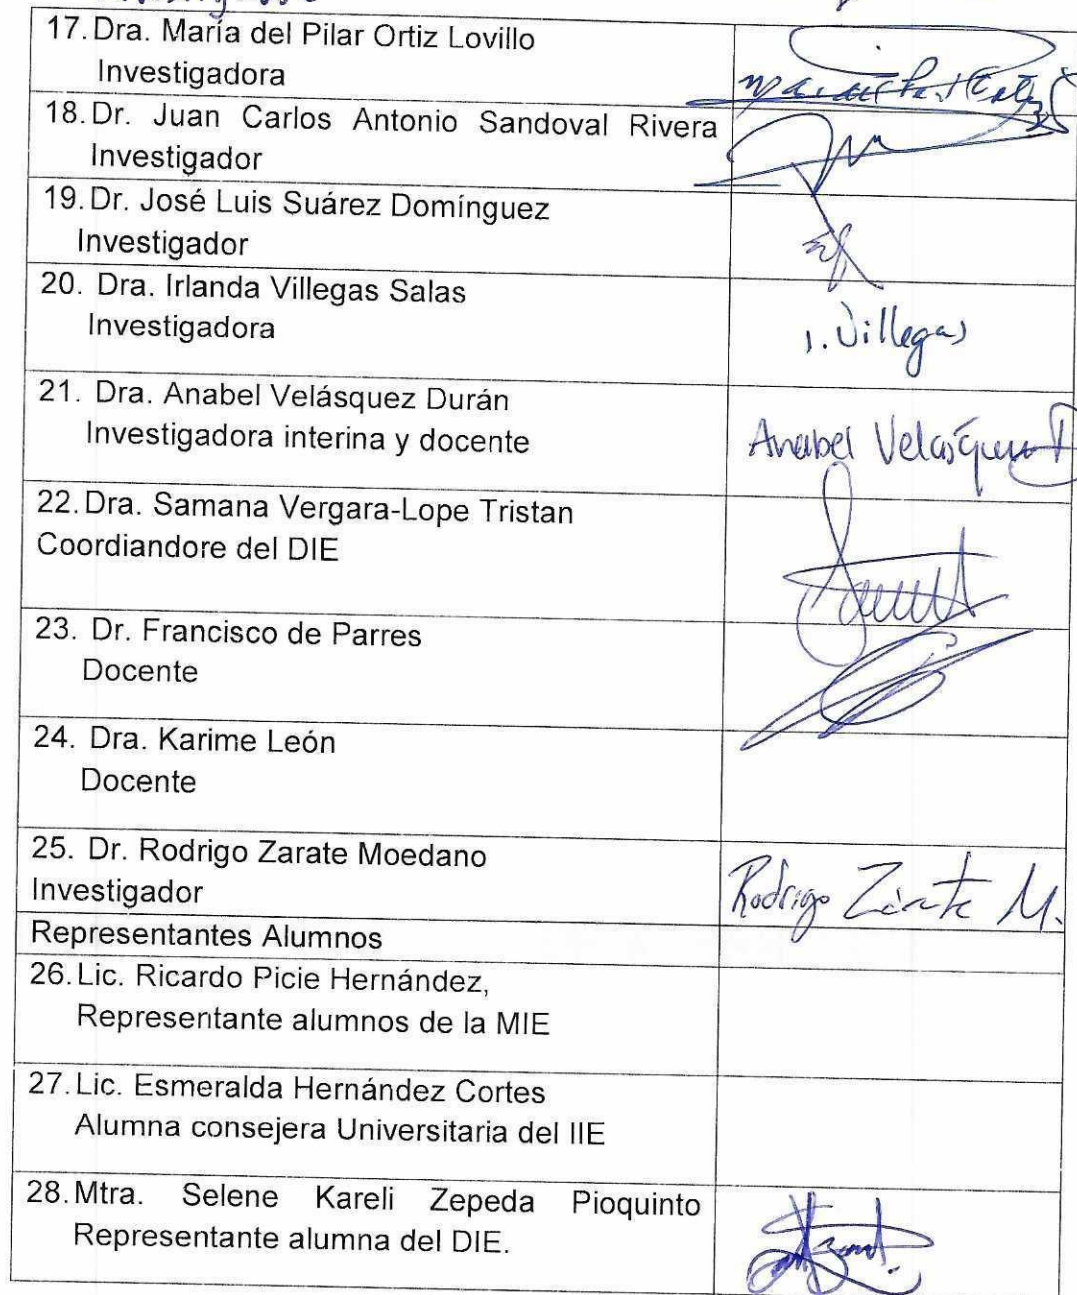 17. Dra. María del Pilar Ortiz Lovillo
Investigadora
18. Dr. Juan Carlos Antonio Sandoval Rivera
Investigador
19. Dr. José Luis Suárez Domínguez
Investigador
20. Dra. Irlanda Villegas Salas
Investigadora
I. Villegas
21. Dra. Anabel Velásquez Durán
Investigadora interina y docente
Anabel Velásquez D
22. Dra. Samana Vergara-Lope Tristan
Coordiandore del DIE
23. Dr. Francisco de Parres
Docente
24. Dra. Karime León
Docente
25. Dr. Rodrigo Zarate Moedano
Investigador
Rodrigo Zárate M.
Representantes Alumnos
26. Lic. Ricardo Picie Hernández,
Representante alumnos de la MIE
27. Lic. Esmeralda Hernández Cortes
Alumna consejera Universitaria del IIE
28. Mtra. Selene Kareli Zepeda Pioquinto
Representante alumna del DIE.